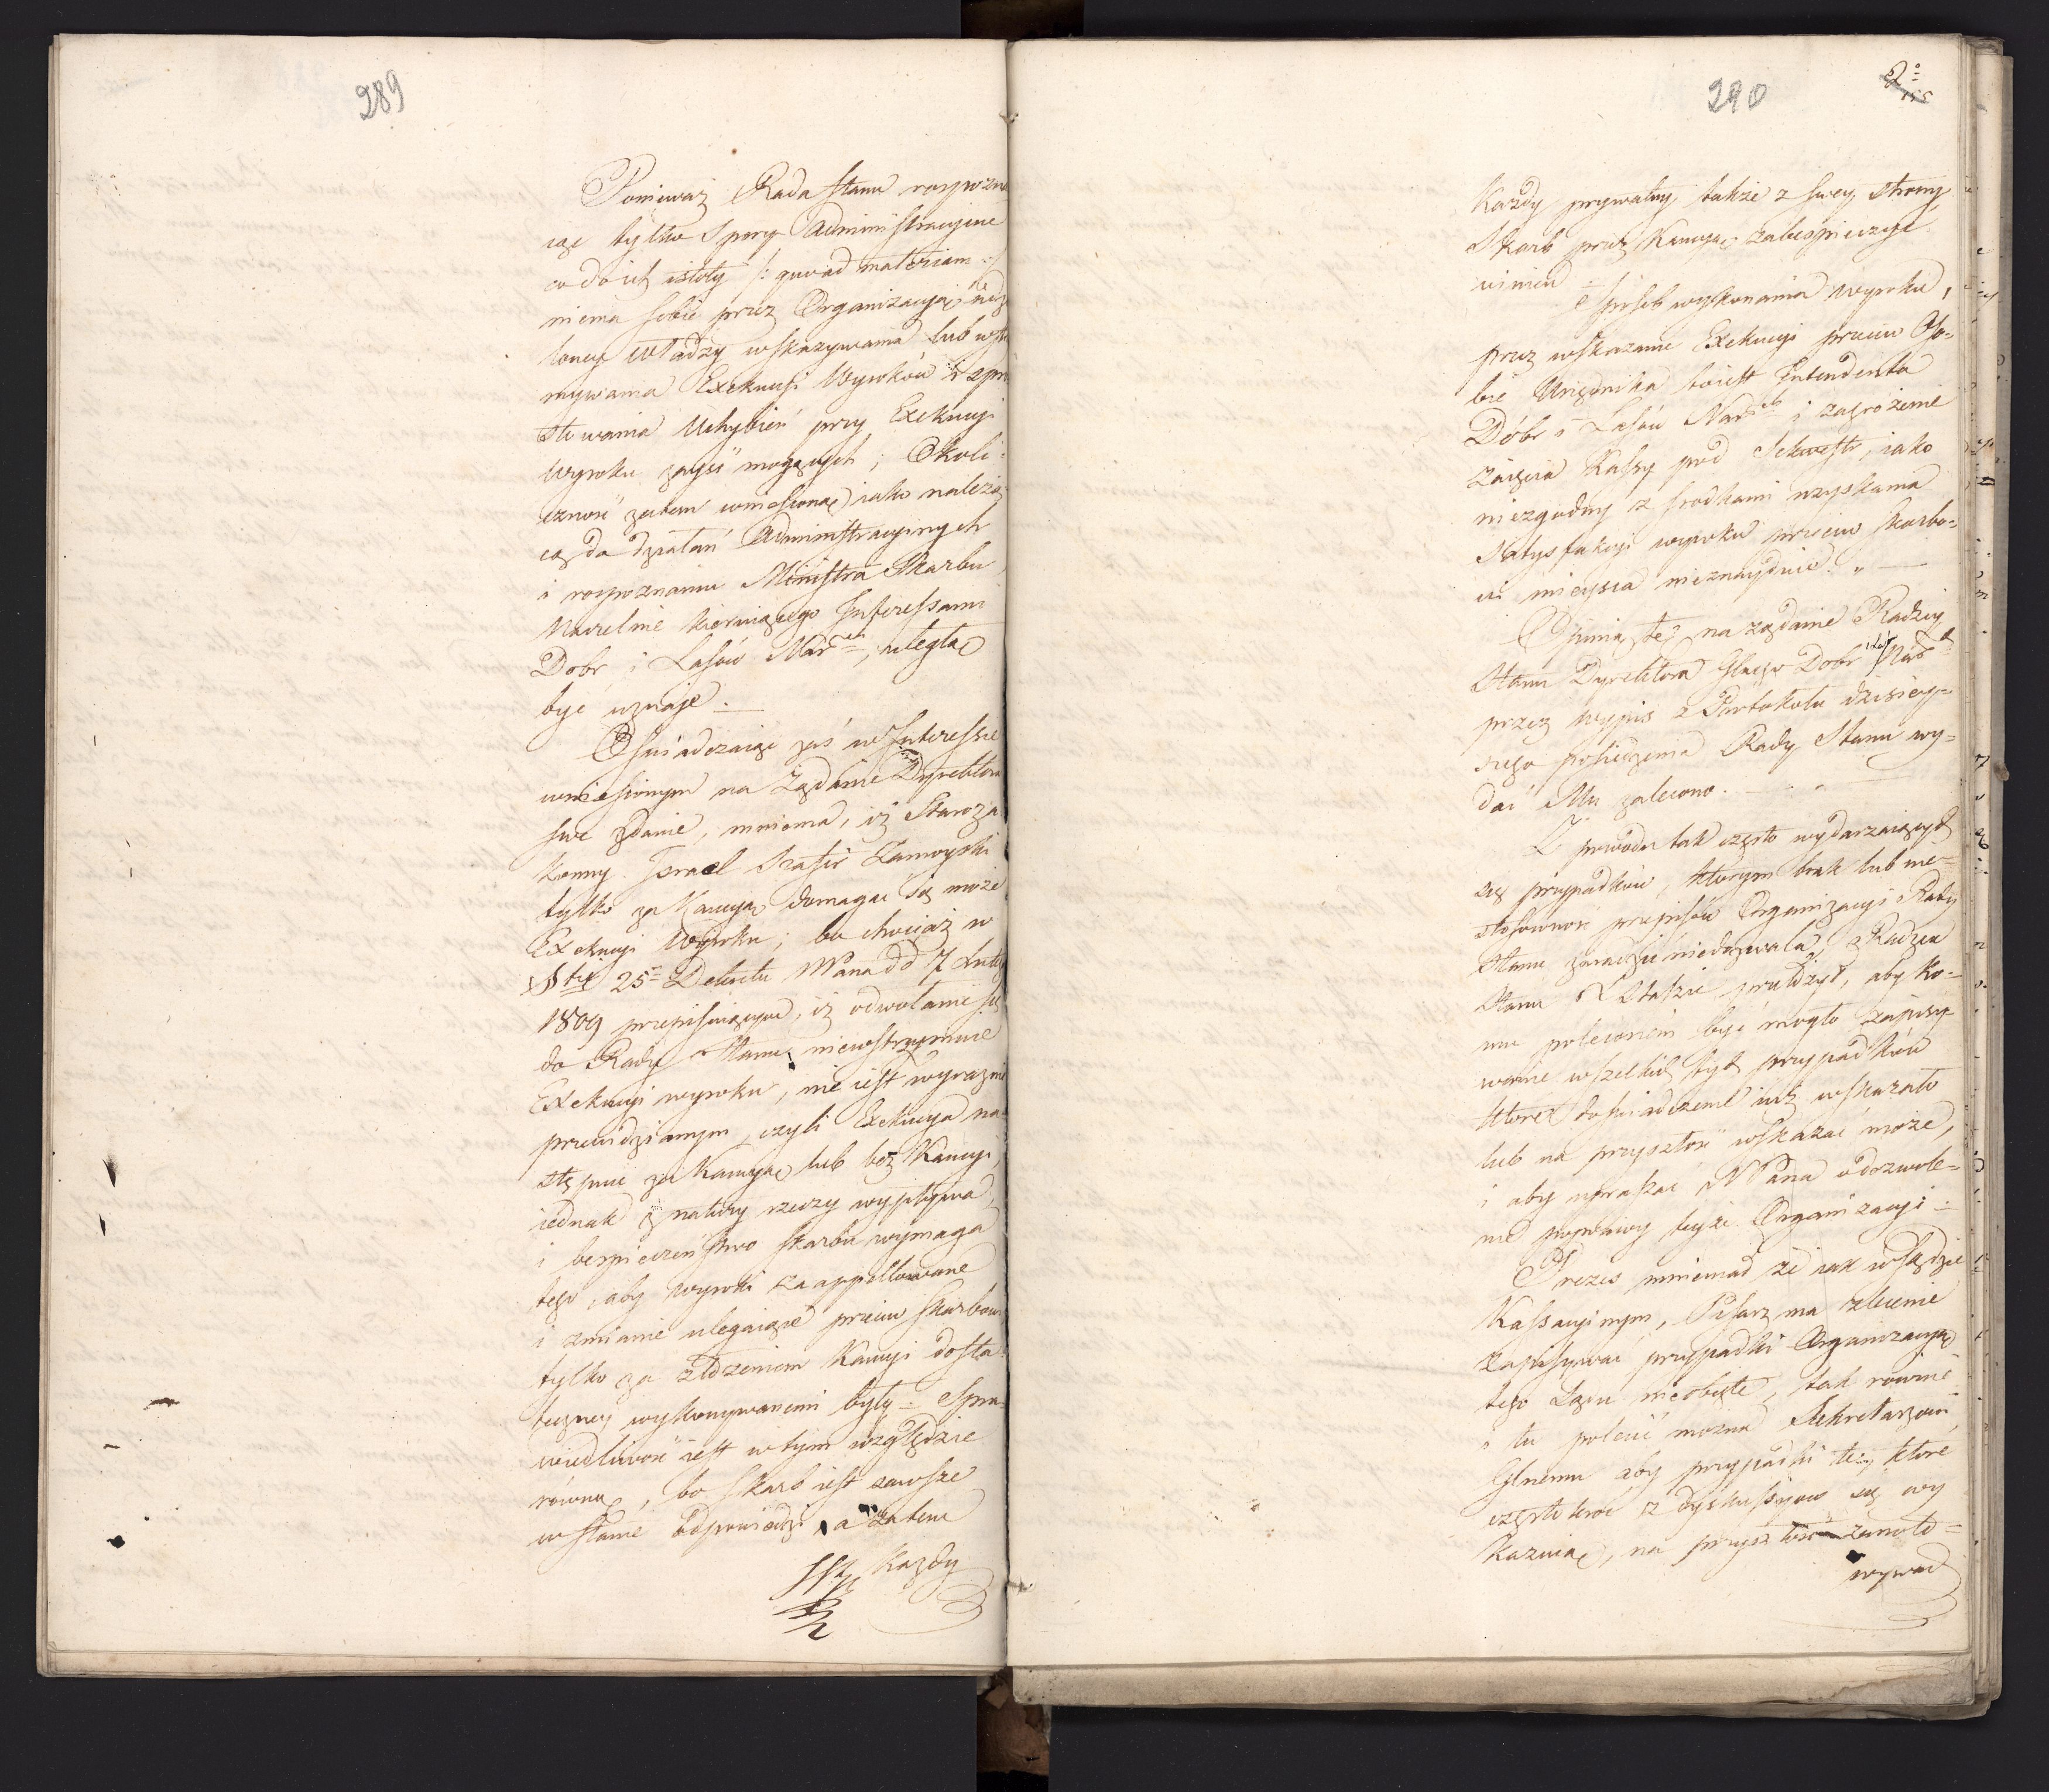 289
Ponieważ Rada Stanu rozpozna
iąc tylko Spory Administracyine
co do ich istoty /: quoad materiam :/
niema sobie przez Organizacyą udzie
loney władzy wskazywania lub wstrzy
mywania Exekucyi Wyroków i spro
stowania Uchybień przy Exekucyi
Wyroku zayść mogących; Okoli-
czność zatem wniesioną iako należą
cą do działań Administracyinych
i rozpoznaniu Ministra Skarbu
Naczelnie kieruiącego Interessami
Dobr i Lasów Nar:ch, uległą
być uznaie. —
Oświadczaiąc zaś w Interessie
wniesionym na Żądanie Dyrektora
swe zdanie, mniema, iż Staroza
konny Israel Szafir Zamoyski
tylko za Kaucyą domagać się może
Exekucyi Wyroku; bo chociaż w
§ 25 Dekretu NPana dd 7 Lutego
1809 przepisuiącym, iż odwołanie się
do Rady Stanu niewstrzymuie
Exekucyi wyroku, nie iest wyraźnie
przewidzianym, czyli Exekucya na
stępuie za Kaucyą lub bez Kaucyi,
iednak z natury rzeczy wypływa,
i bespieczeństwo skarbu wymaga
tego, aby wyroki zaappellowane
i zmianie ulegaiące przeciw skarbowi
tylko za złożeniem Kaucyi dosta
teczney wykonywanemi były = Spra-
wiedliwość iest w tym względzie
równą, bo skarb iest zawsze
w stanie odpowiedzi, a zatem
Każdy
290
Każdy prywatny także z swey strony
Skarb przez Kaucyą zabespieczyć
winien =
Sposób wykonania wyroku,
przez wskazanie Exekucyi przeciw Oso-
bie Urzędnika toiest Intendenta
Dóbr i Lasów Nar:ch i zagrożenie
zaięcia Kassy pod Sekwestr, iako
niezgodny z srodkami uzyskania
Satysfakcyi wyroku przeciw skarbo-
wi mieysca nieznayduie. „ —
Opinią tę na żądanie Radzcy
Stanu Dyrektora Glnego Dobr i Las: Nar:
przez wypis z Protokołu dzisiey-
szego posiedzenia Rady Stanu wy-
dać Mu zalecono. —
Z powodu tak często wydarzaiących
się przypadków, którym brak lub nie-
stosowność przepisów Organizacyi Rady
Stanu zaradzić niedozwala, Radzca
Stanu przełożył, aby ko-
mu poleconem być mogło zapisy-
wanie wszelkich tych przypadków
które doświadczenie iuż wskazało
lub na przyszłość wskazać może,
i aby upraszać NPana o dozwole-
nie poprawy teyże Organizacyi =
Prezes mniemał że iak w Sądzie
Kassacyinym, Pisarz ma zlecenie
zapisywać przypadki Organizacyą
tego Sądu nieobięte, tak równie
i tu polecić można Sekretarzowi
Glnemu aby przypadki te, które
częstokroć z dyskussyów się wy
kazuią, na przyszłość zanoto=
wywał